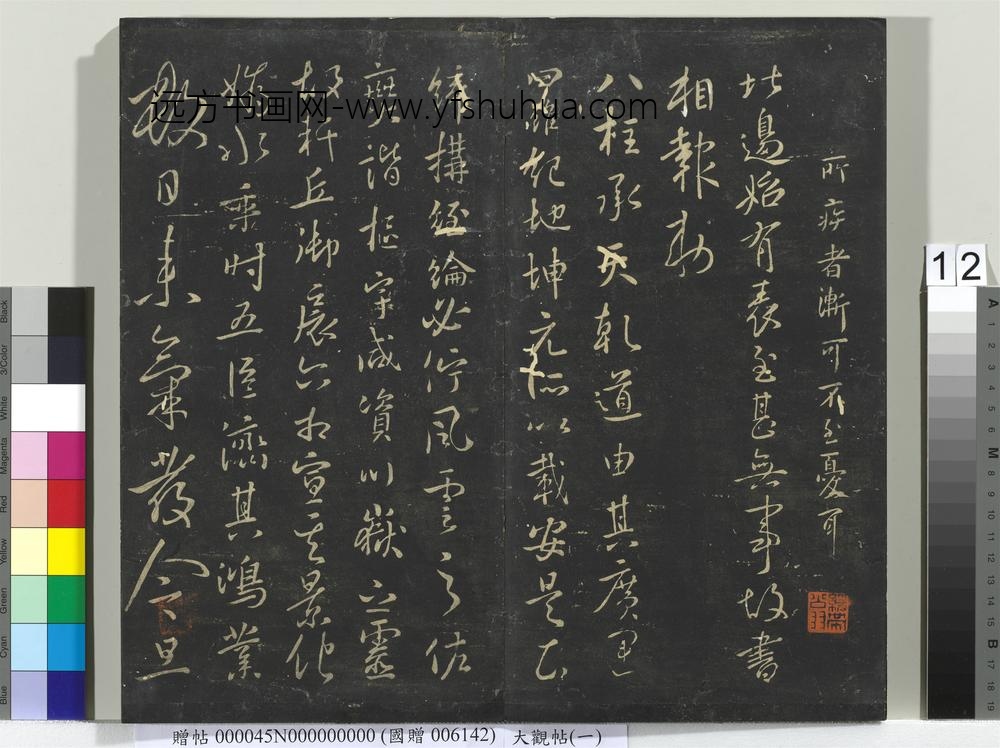 所疾者漸可不至憂耳
比邊始有表至甚無事故書
相報勅
八柱承天乾道由其廣運
四維紀地坤元所以載安是以
締構經綸必佇風雲之佐
興諧樞宰咸資川嶽之靈
故軒丘御扆六相宣其景化
媯水乘時五臣濟其鴻業
數日來氣發今旦
远方书画网-www.yfshuhua.com
12
贈帖 000045N000000000 (國贈 006142) 大觀帖(一)
Black
3/Color
White
Magenta
Red
Yellow
Green
Cyan
Blue
A
1
2
3
4
5
6
M
8
9
10
11
12
13
14
15
B
17
18
19